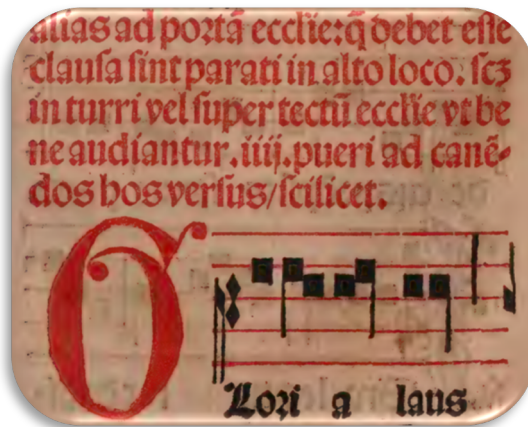 alias ad portā ecclie: q̄ debet esse
clausa sint parati in alto loco. scꝫ
in turri vel super tectū ecclie vt be
ne audiantur. iiij. pueri ad canē-
dos hos versus/scilicet.
G
Lori a laus